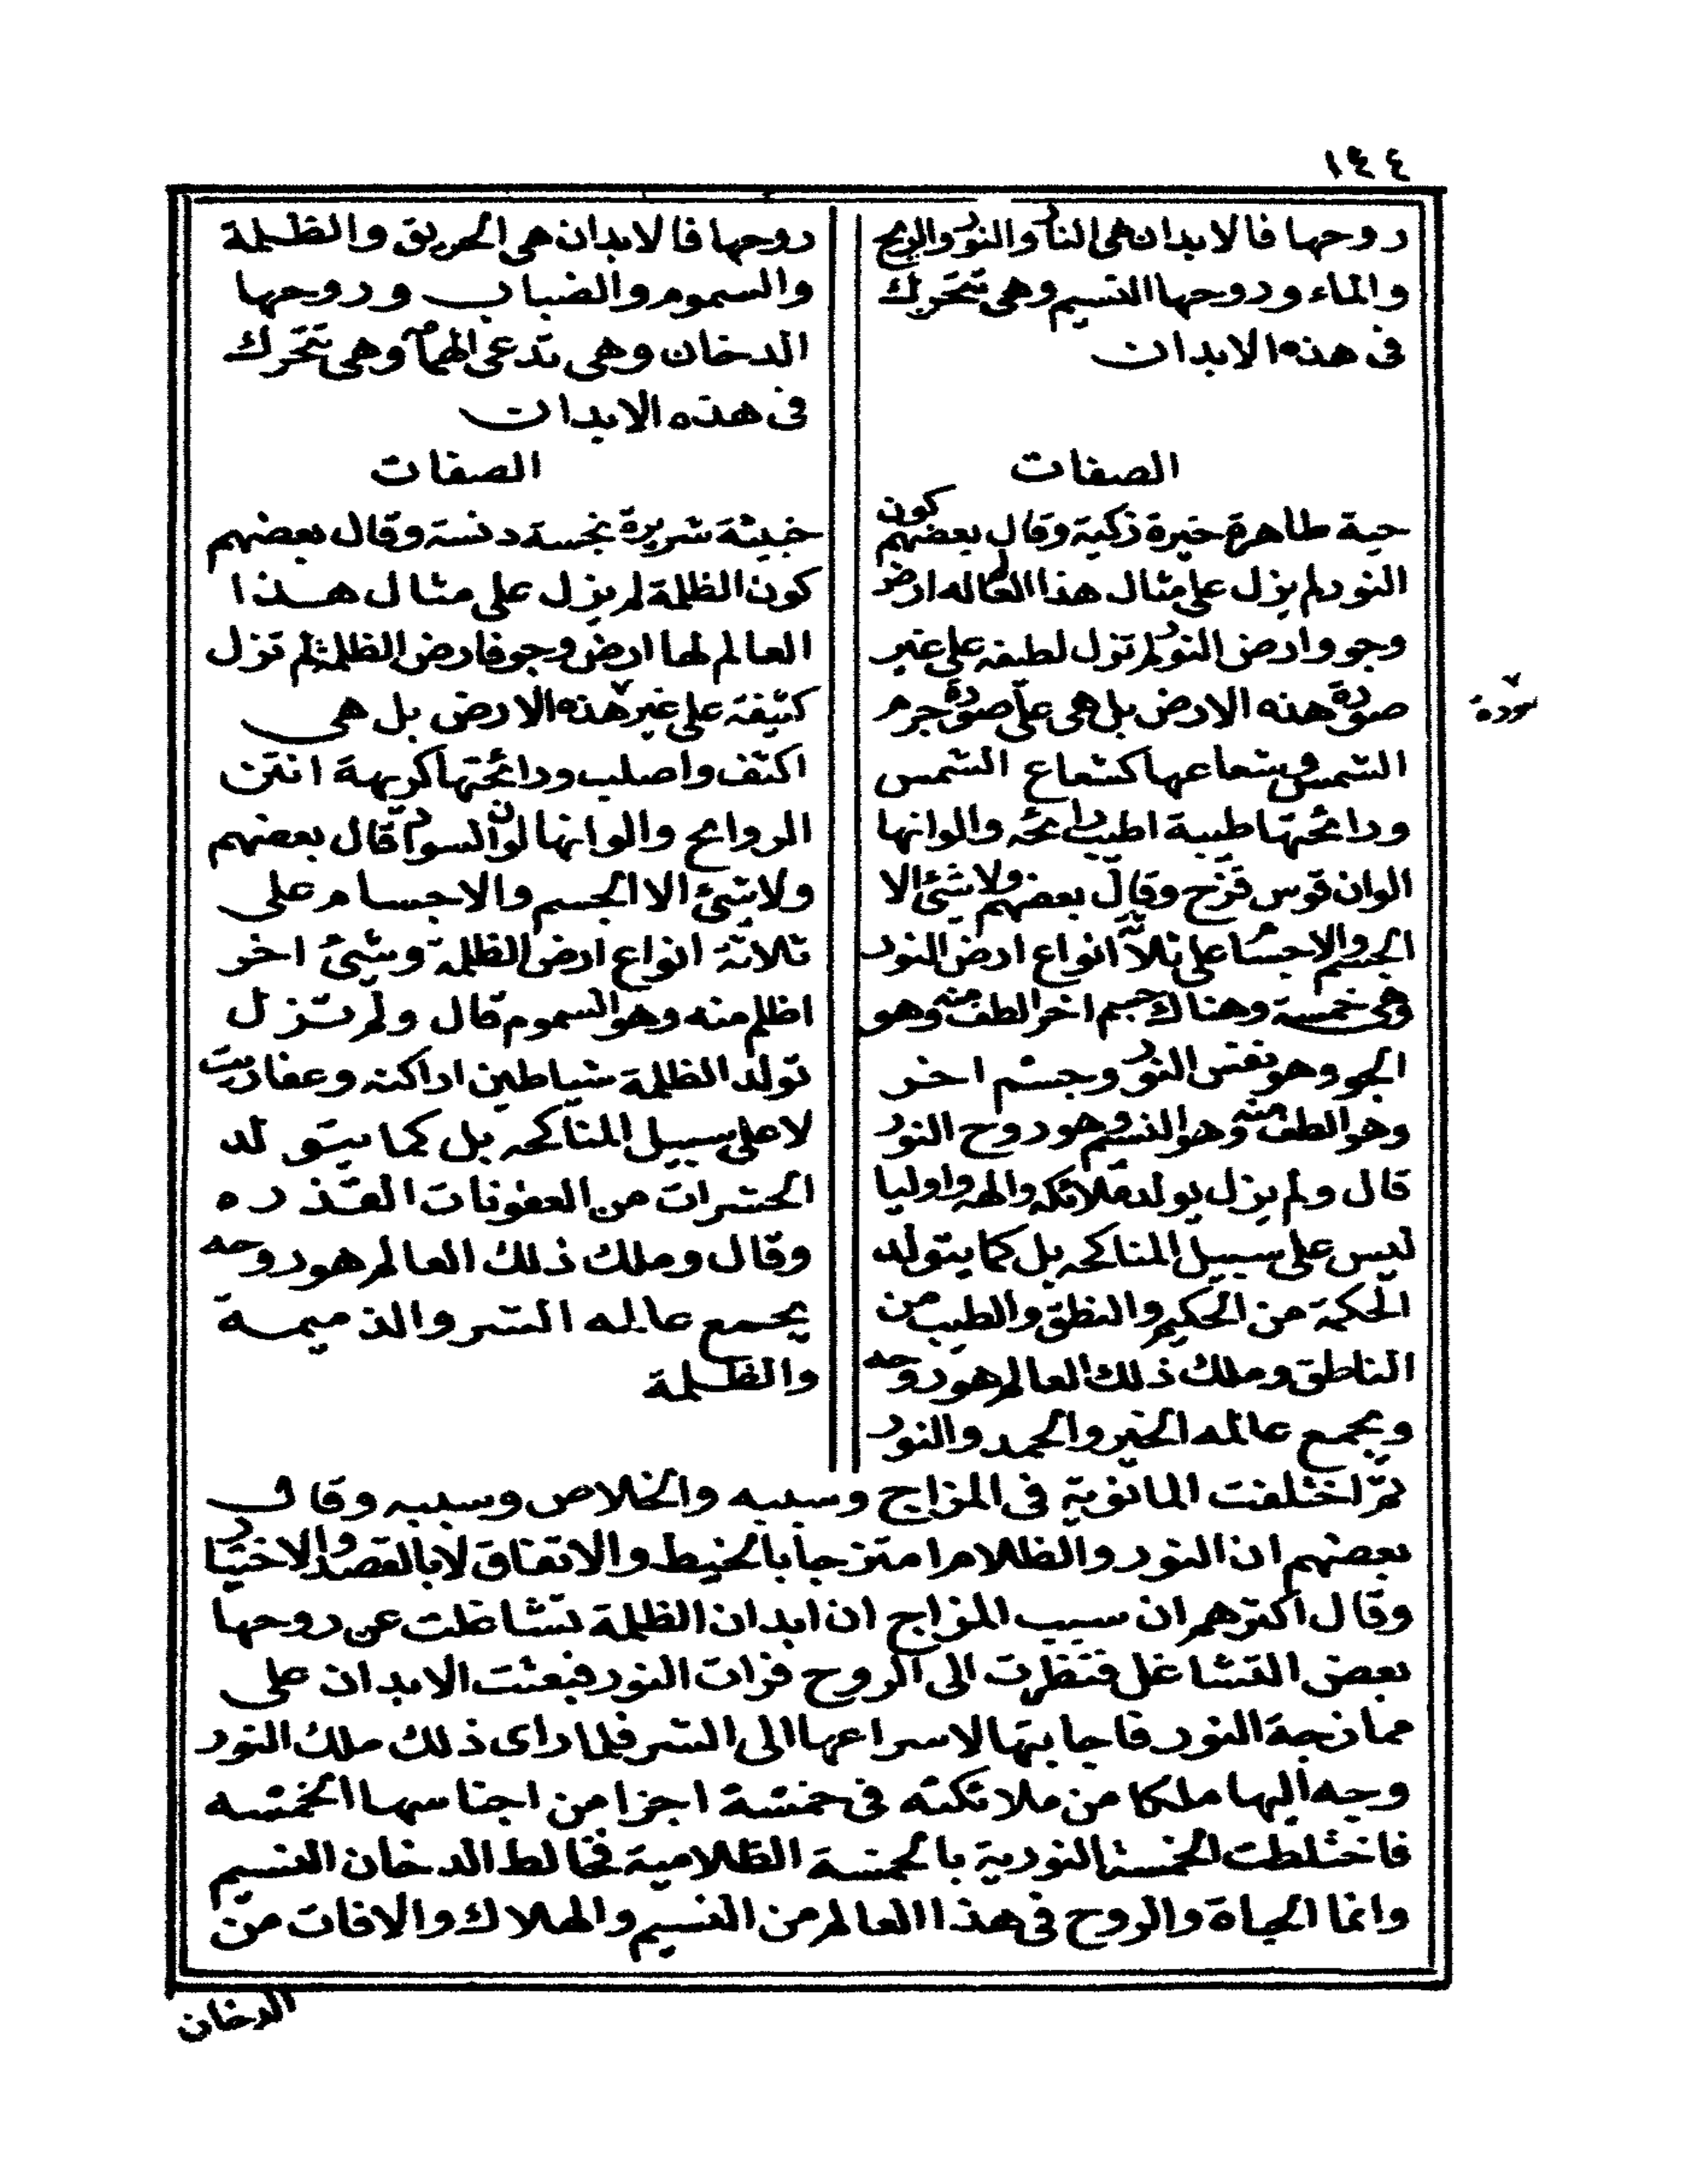 ١٤٤
روحها فالابدان هى النار والنور والريح
والماء وروحها النسيم وهى تتحرك
فى هذه الابدان
الصفات
حية طاهرة خيرة زكية وقال بعضهم كون
النور لم يزل على مثال هذا العالم له ارض
وجو وارض النور لم تزل لطيفه على غير
صورة هذه الارض بل هى على صورة جرم
الشمس وشعاعها كشعاع الشمس
ورائحتها طيبة اطيب رائحه والوانها
الوان قوس قزح وقال بعضهم ولا شئ الا
الجسم والاجسام على ثلاثة انواع ارض النور
وهى خمسة وهناك جسم اخر الطف منه وهو
الجو وهو نفس النور وجسم اخر
وهو الطف منه وهو النسيم وهو روح النور
قال ولم يزل يولد ملائكه والهه واوليا
ليس على سبيل المناكحه بل كما يتولد
الحكمة من الحكيم والنطق والطيب من
الناطق وملك ذلك العالم هو روحه
ويجمع عالمه الخير والحمد والنور
روحها فالابدان هى الحريق والظلمة
والسموم والضباب وروحها
الدخان وهى تدعى الهمامة وهى تتحرك
فى هذه الابدان
الصفات
خبيثة شريرة نجسة دنسة وقال بعضهم
كون الظلمة لم يزل على مثال هذا
العالم لها ارض وجو فارض الظلمة لم تزل
كثيفة على غير هذه الارض بل هى
اكثف واصلب ورائحتها كريهة انتن
الروائح والوانها لون السواد قال بعضهم
ولا شئ الا الجسم والاجسام على
ثلاثة انواع ارض الظلمة وشئ اخر
اظلم منه وهو السموم قال ولم تزل
تولد الظلمة شياطين اراكنه وعفاريت
لا على سبيل المناكحه بل كما يتولد
الحشرات من العفونات القذره
وقال وملك ذلك العالم هو روحه
يجمع عالمه الشر والذميمة
والظلمة
سورة
ثم اختلفت المانوية فى المزاج وسببه والخلاص وسببه وقال
بعضهم ان النور والظلام امتزجا بالخبط والاتفاق لا بالقصد والاختيار
وقال اكثرهم ان سبب المزاج ان ابدان الظلمة تشاغلت عن روحها
بعض التشاغل فنظرت الى الروح فرات النور فبعثت الابدان على
ممازجة النور فاجابتها لاسراعها الى الشر فلما راى ذلك ملك النور
وجه اليها ملكا من ملائكته فى خمسة اجزا من اجناسها الخمسه
فاختلطت الخمسة النورية بالخمسة الظلامية فخالط الدخان النسيم
وانما الحياة والروح فى هذا العالم من النسيم والهلاك والافات من
الدخان